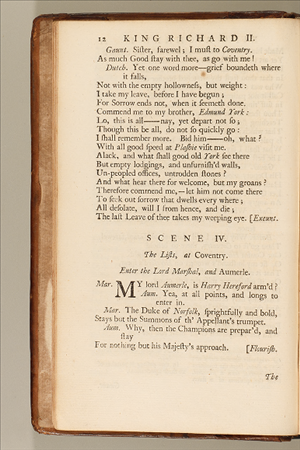 12 KING RICHARD II.
Gaunt. Sister, farewel; I must to Coventry.
As much Good stay with thee, as go with me!
Dutch. Yet one word more—grief boundeth where
it falls,
Not with the empty hollowness, but weight:
I take my leave, before I have begun;
For Sorrow ends not, when it seemeth done.
Commend me to my brother, Edmund York:
Lo, this is all——nay, yet depart not so;
Though this be all, do not so quickly go:
I shall remember more. Bid him——oh, what?
With all good speed at Plashie visit me.
Alack, and what shall good old York see there
But empty lodgings, and unfurnish'd walls,
Un-peopled offices, untrodden stones?
And what hear there for welcome, but my groans?
Therefore commend me,—let him not come there
To seek out sorrow that dwells every where;
All desolate, will I from hence, and die;
The last Leave of thee takes my weeping eye. [Exeunt.
SCENE IV.
The Lists, at Coventry.
Enter the Lord Marshal, and Aumerle.
Mar. MY lord Aumerle, is Harry Hereford arm'd?
Aum. Yea, at all points, and longs to
enter in.
Mar. The Duke of Norfolk, sprightfully and bold,
Stays but the Summons of th' Appellant's trumpet.
Aum. Why, then the Champions are prepar'd, and
stay
For nothing but his Majesty's approach. [Flourish.
The